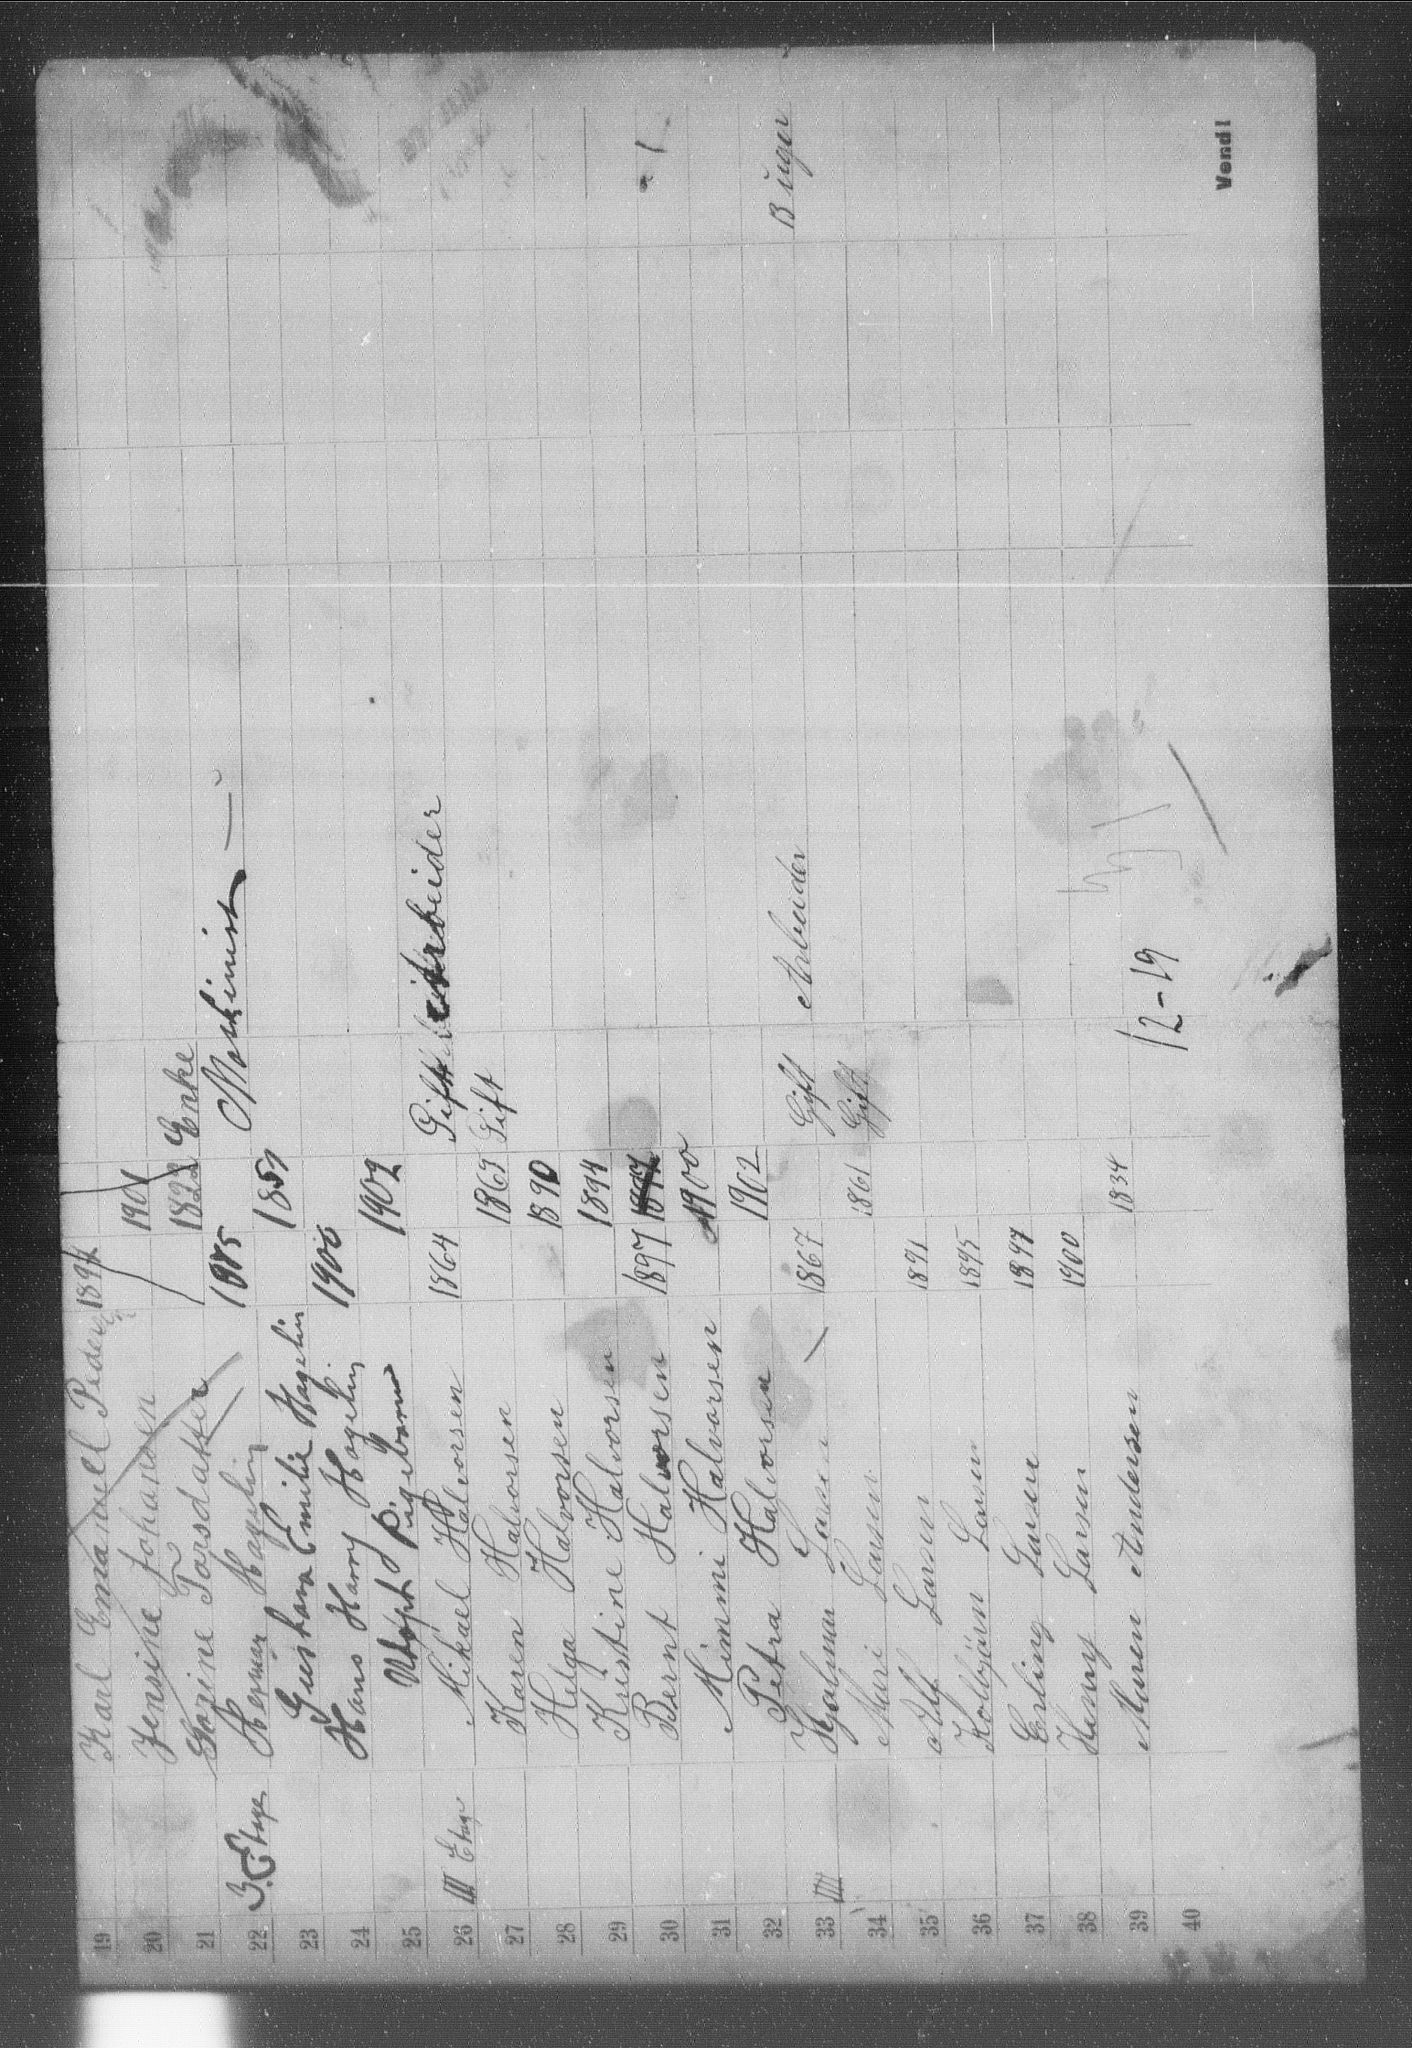 19 Karl Emanuel Pedersen 1894
20 Jensine Johansen 1901
21 Torsdatter 1822 Enke
22 3. Etage Herman Hagelin 1885 Maskinist —
23 Gustava Emilie Hagelin 1859
24 Hans Harry Hagelin 1900
25 Adopt Pigebarn 1902
26 III Etage Mikael Halvorsen 1864 Gift Arbeider
27 Karen Halvorsen 1869 Gift
28 Helga Halvorsen 1890
29 Kristine Halvorsen 1894
30 Bernt Halvorsen 1897
31 Mimmi Halvorsen 1900
32 Petra Halvorsen 1902
33 IIII Hjalmar Larsen 1867 Gift Arbeider
34 Mari Larsen 1861 Gift
35 Alf Larsen 1891
36 Kolbjørn Larsen 1895
37 Erling Larsen 1897
38 Henny Larsen 1900
39 Maren Andersen 1834
40
12-19
Vend!